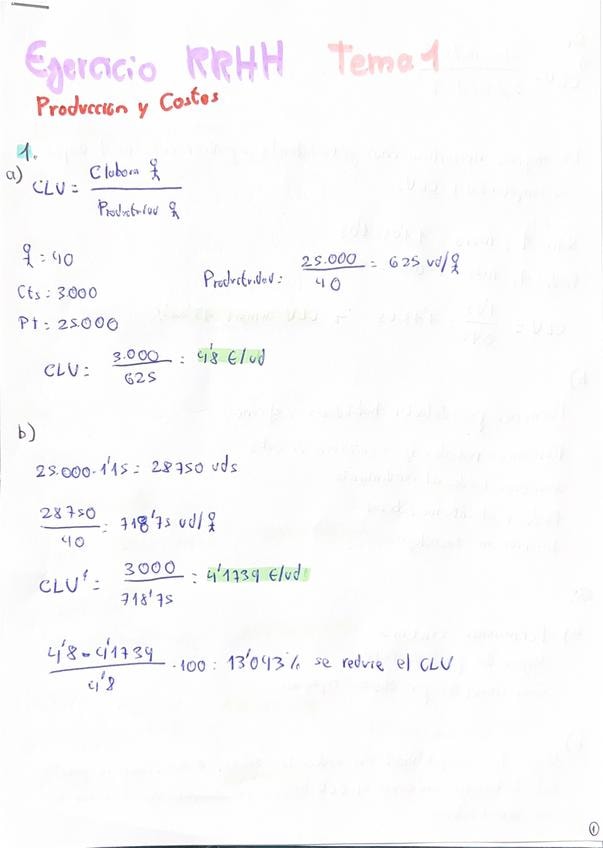 Ejercicio RRHH Tema 1
Producción y Costes
1.
a) CLU = C labora / Productividad
= 40
Cts = 3.000
Pt = 25.000
Productividad = 25.000 / 40 = 625 ud/
CLU = 3.000 / 625 = 4'8 €/ud
b)
25.000 · 1'15 = 28750 uds
28750 / 40 = 718'75 ud/
CLU' = 3000 / 718'75 = 4'1739 €/ud
4'8 - 4'1739 / 4'8 · 100 = 13'043% se reduce el CLU
1